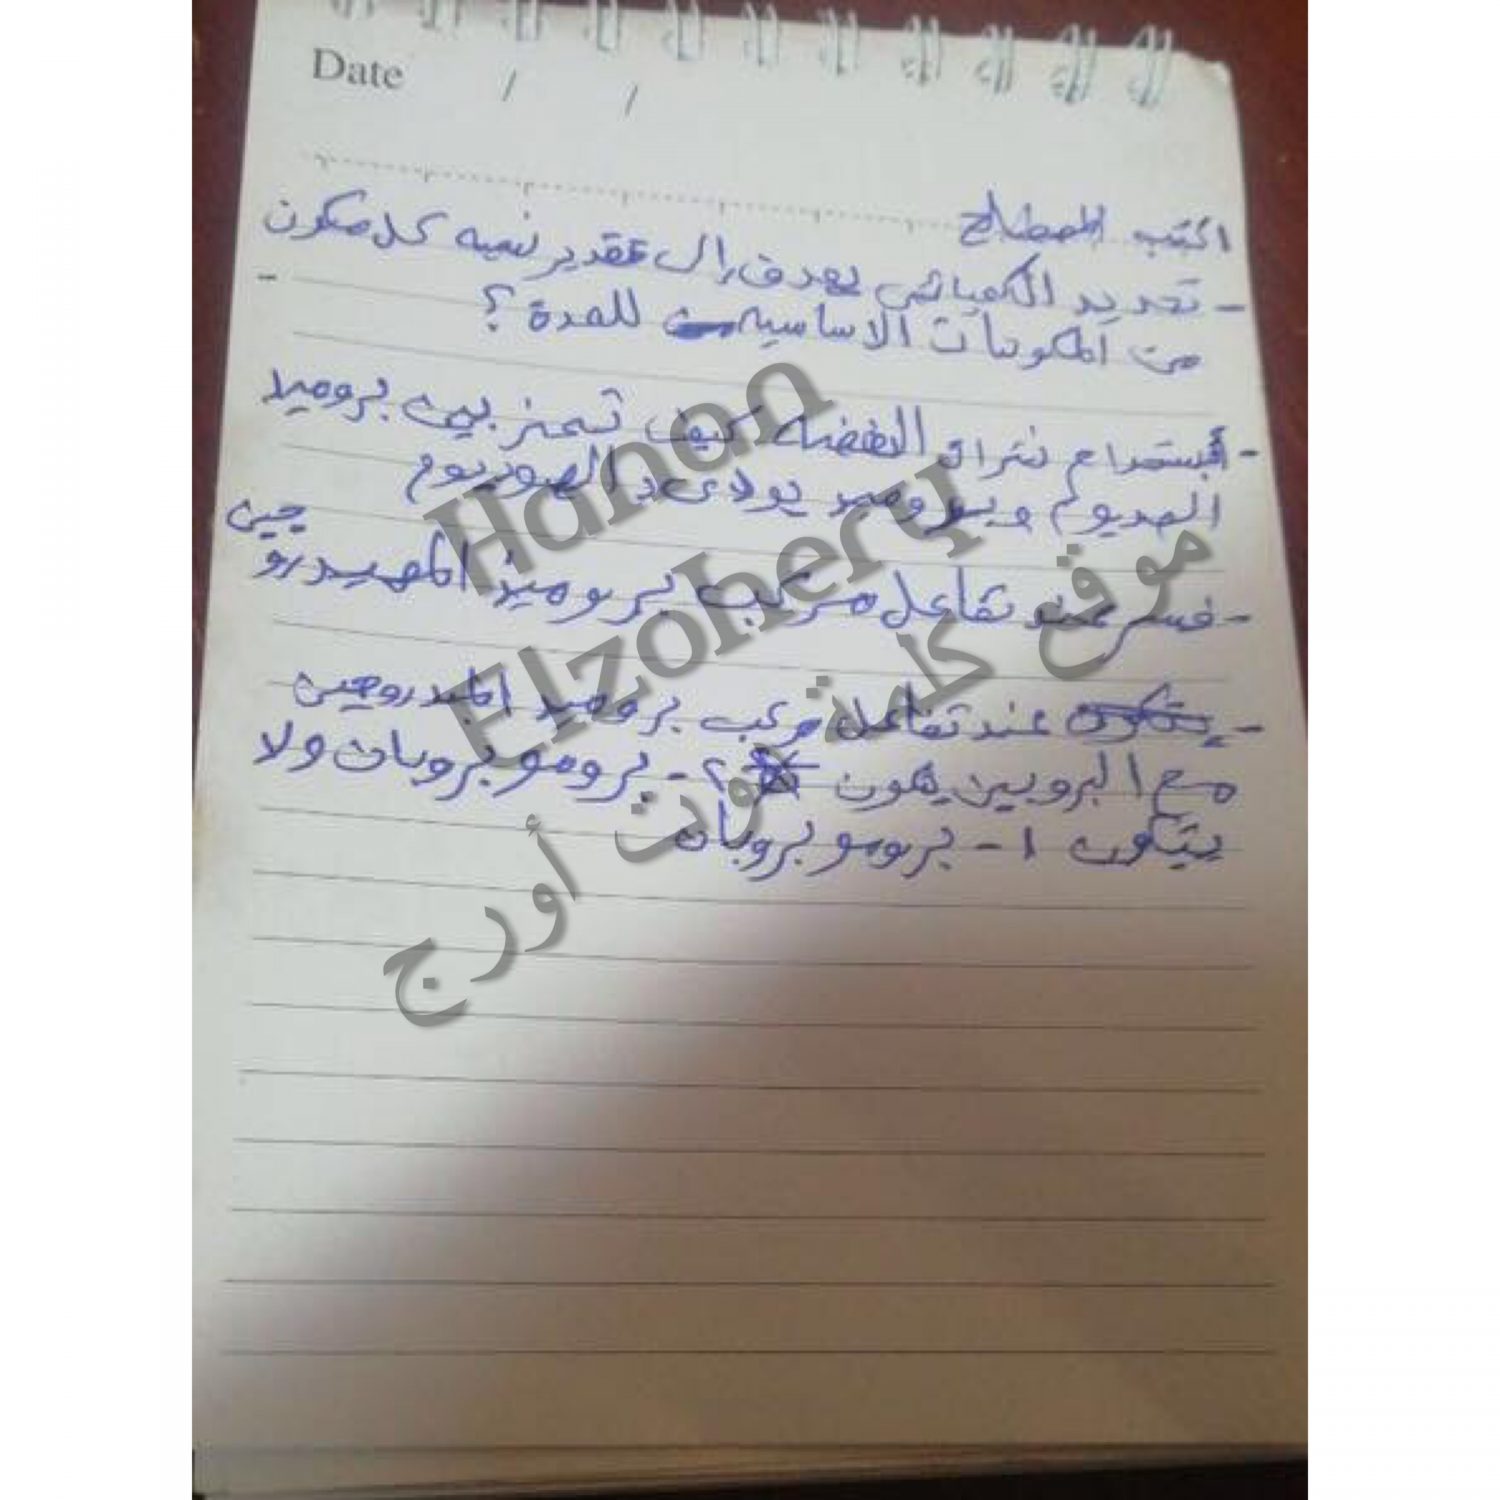 Date / /
اكتب المصطلح
- تحديد الكميائي يهدف إلى تقدير نسبه كل مكون
من المكونات الاساسيه للمدة ؟
- أبستخدام نترات الفضه كيف تميز بين بروميد
الصديوم و يوديد الصوديوم
- فسر عند تفاعل مركب بروميد الهيدرو جين
- يتكون عند تفاعل مركب بروميد الهيدروجين
مع البروبين يكون ٢ - برومو بروبان ولا
يتكون ١ - برومو بروبان
Hanan
Elzohery
موقع كلمة اوت أورج